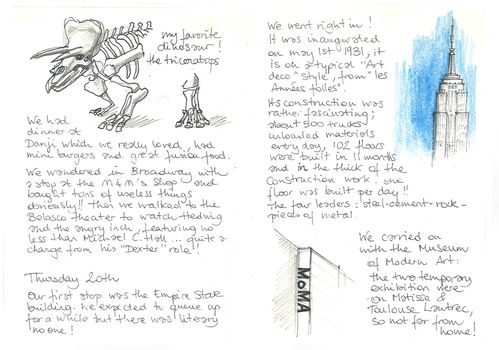 my favorite
dinosaur!
the triceratops
We had
dinner at
Danji which we really loved, had
mini burgers and great fusion food.
We wandered in Broadway with
a stop at the M&M's Shop and
bought tons of useless things
obviously!! then we walked to the
Belasco theater to watch Hedwig
and the angry inch, featuring no
less than Michael C. Hall... quite a
change from his "Dexter" role!!
Thursday 20th
Our first stop was the Empire State
building. We expected to queue up
for a while but there was literary
no one!
We went right in!
It was inaugurated
on may 1st 1931, it
is on a typical "Art
deco" style, from "les
Années folles".
Its construction was
rather fascinating;
about 500 trucks
unloaded materials
every day, 102 floors
were built in 11 months
and in the thick of the
construction work, one
floor was built per day!!
the four leaders: steel-cement-rock-
pieces of metal.
MoMA
We carried on
with the Museum
of Modern Art:
the two temporary
exhibition were
on Matisse &
Toulouse Lautrec,
so not far from
home!